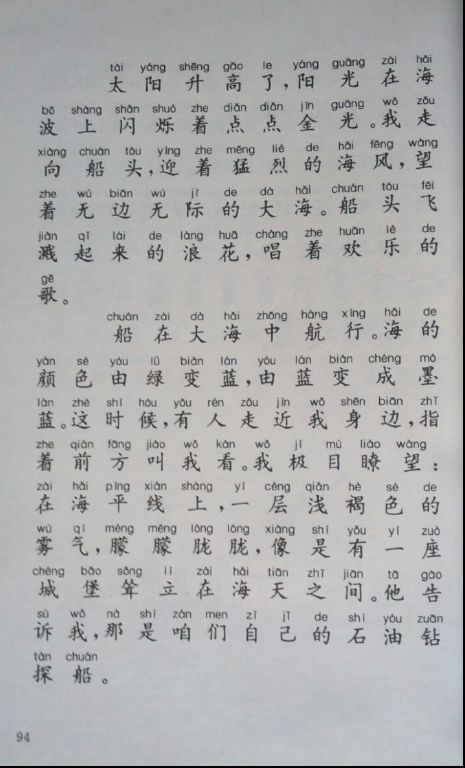 tài yáng shēng gāo le yáng guāng zài hǎi
太阳升高了，阳光在海
bō shàng shǎn shuò zhe diǎn diǎn jīn guāng wǒ zǒu
波上闪烁着点点金光。我走
xiàng chuán tóu yíng zhe měng liè de hǎi fēng wàng
向船头，迎着猛烈的海风，望
zhe wú biān wú jì de dà hǎi chuán tóu fēi
着无边无际的大海。船头飞
jiàn qǐ lái de làng huā chàng zhe huān lè de
溅起来的浪花，唱着欢乐的
gē
歌。
chuán zài dà hǎi zhōng háng xíng hǎi de
船在大海中航行。海的
yán sè yóu lǜ biàn lán yóu lán biàn chéng mò
颜色由绿变蓝，由蓝变成墨
lán zhè shí hòu yǒu rén zǒu jìn wǒ shēn biān zhǐ
蓝。这时候，有人走近我身边，指
zhe qián fāng jiào wǒ kàn wǒ jí mù liào wàng
着前方叫我看。我极目瞭望：
zài hǎi píng xiàn shàng yì céng qiǎn hè sè de
在海平线上，一层浅褐色的
wù qì méng méng lóng lóng xiàng shì yǒu yí zuò
雾气，朦朦胧胧，像是有一座
chéng bǎo sǒng lì zài hǎi tiān zhī jiān tā gào
城堡耸立在海天之间。他告
sù wǒ nà shì zán men zì jǐ de shí yóu zuān
诉我，那是咱们自己的石油钻
tàn chuán
探船。
94